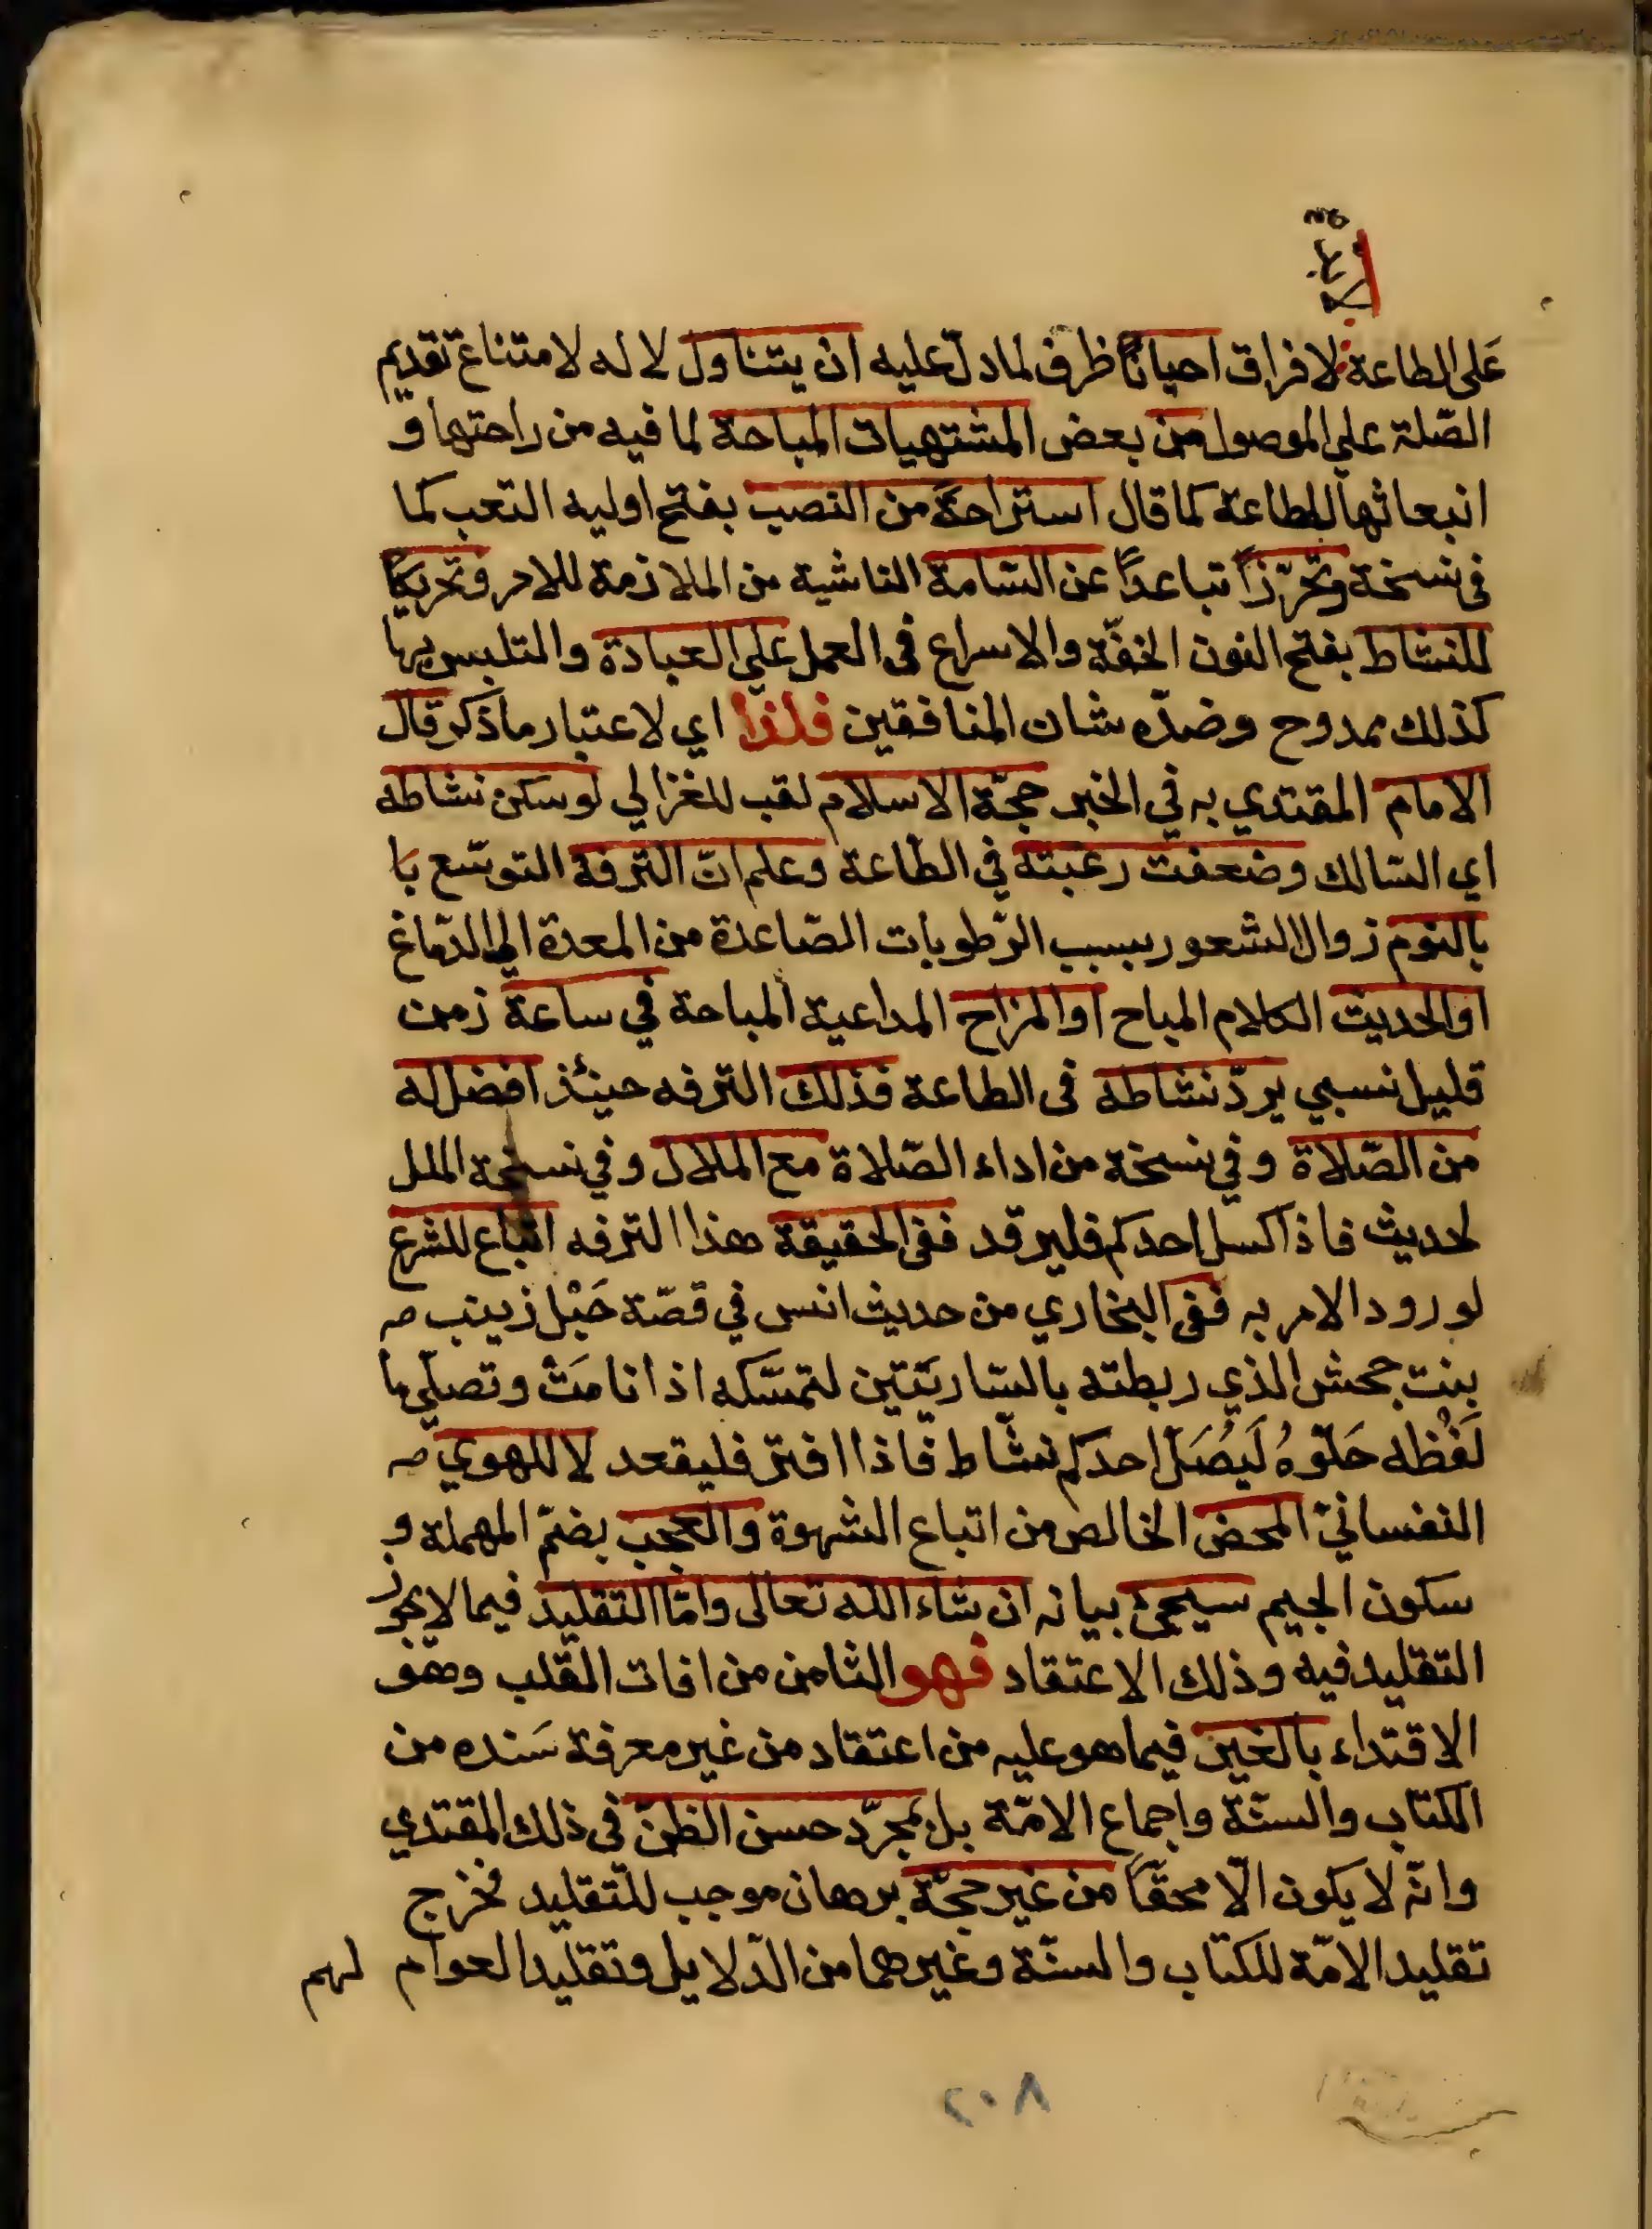 على الطاعة لافراق احيانًا ظرف لما دلّ عليه ان يتناول لا له لامتناع تقديم
الصّلة على الموصول من بعض المشتهيات المباحة لما فيه من راحتها و
انبعاثها للطاعة كما قال استراحة من النصب بفتح اوليه التعب كما
فى نسخة وتحرّزًا تباعدًا عن السّامة الناشية من الملازمة للامر وتحريكًا
للنشاط بفتح النون الخفّة والاسراع فى العمل على العبادة والتلبس بها
كذلك ممدوح وضدّه شان المنافقين فلذا اي لاعتبار ما ذكر قال
الامام المقتدي به في الخبر حجّة الاسلام لقب للغزالي لو سكن نشاطه
اي السّالك وضعفت رغبته في الطّاعة وعلم انّ الترفه التوسّع با
بالنوم زوال الشعور بسبب الرّطوبات الصّاعدة من المعدة الى الدّماغ
او الحديث الكلام المباح او المزاح المداعبة المباحة في ساعة زمن
قليل نسبي يردّ نشاطه فى الطاعة فذلك الترفه حينئذ افضل له
من الصّلاة وفي نسخة من اداء الصّلاة مع الملال وفي نسخة الملل
لحديث فاذا كسل احدكم فليرقد ففى الحقيقة هذا الترفه اتباع للشرع
لورود الامر به ففى البخاري من حديث انس في قصّة حَبْل زينب
بنت جحش الذي ربطته بالسّاريتين لتمسّكه اذا نامَتْ وتصلّي ما
لَفْظه حَلّوهُ لَيُصَلّ احدكم نشّاط فاذا افتر فليقعد لا للهوي
النفسانيّ المحض الخالص من اتباع الشهوة والعجب بضمّ المهملة و
سكون الجيم سيجئ بيانه ان شاء الله تعالى وامّا التقليد فيما لا يجوز
التقليد فيه وذلك الاعتقاد فهو الثامن من افات القلب وهو
الاقتداء بالغير فيما هو عليه من اعتقاد من غير معرفة سَنده من
الكتاب والسنّة واجماع الامّة بل بمجرّد حسن الظنّ فى ذلك المقتدي
وانّه لا يكون الّا محقّاً من غير حجّة برهان موجب للتقليد فخرج
تقليد الامّة للكتاب والسنّة وغيرهما من الدّلايل وتقليد العوام لهم
٢٠٨